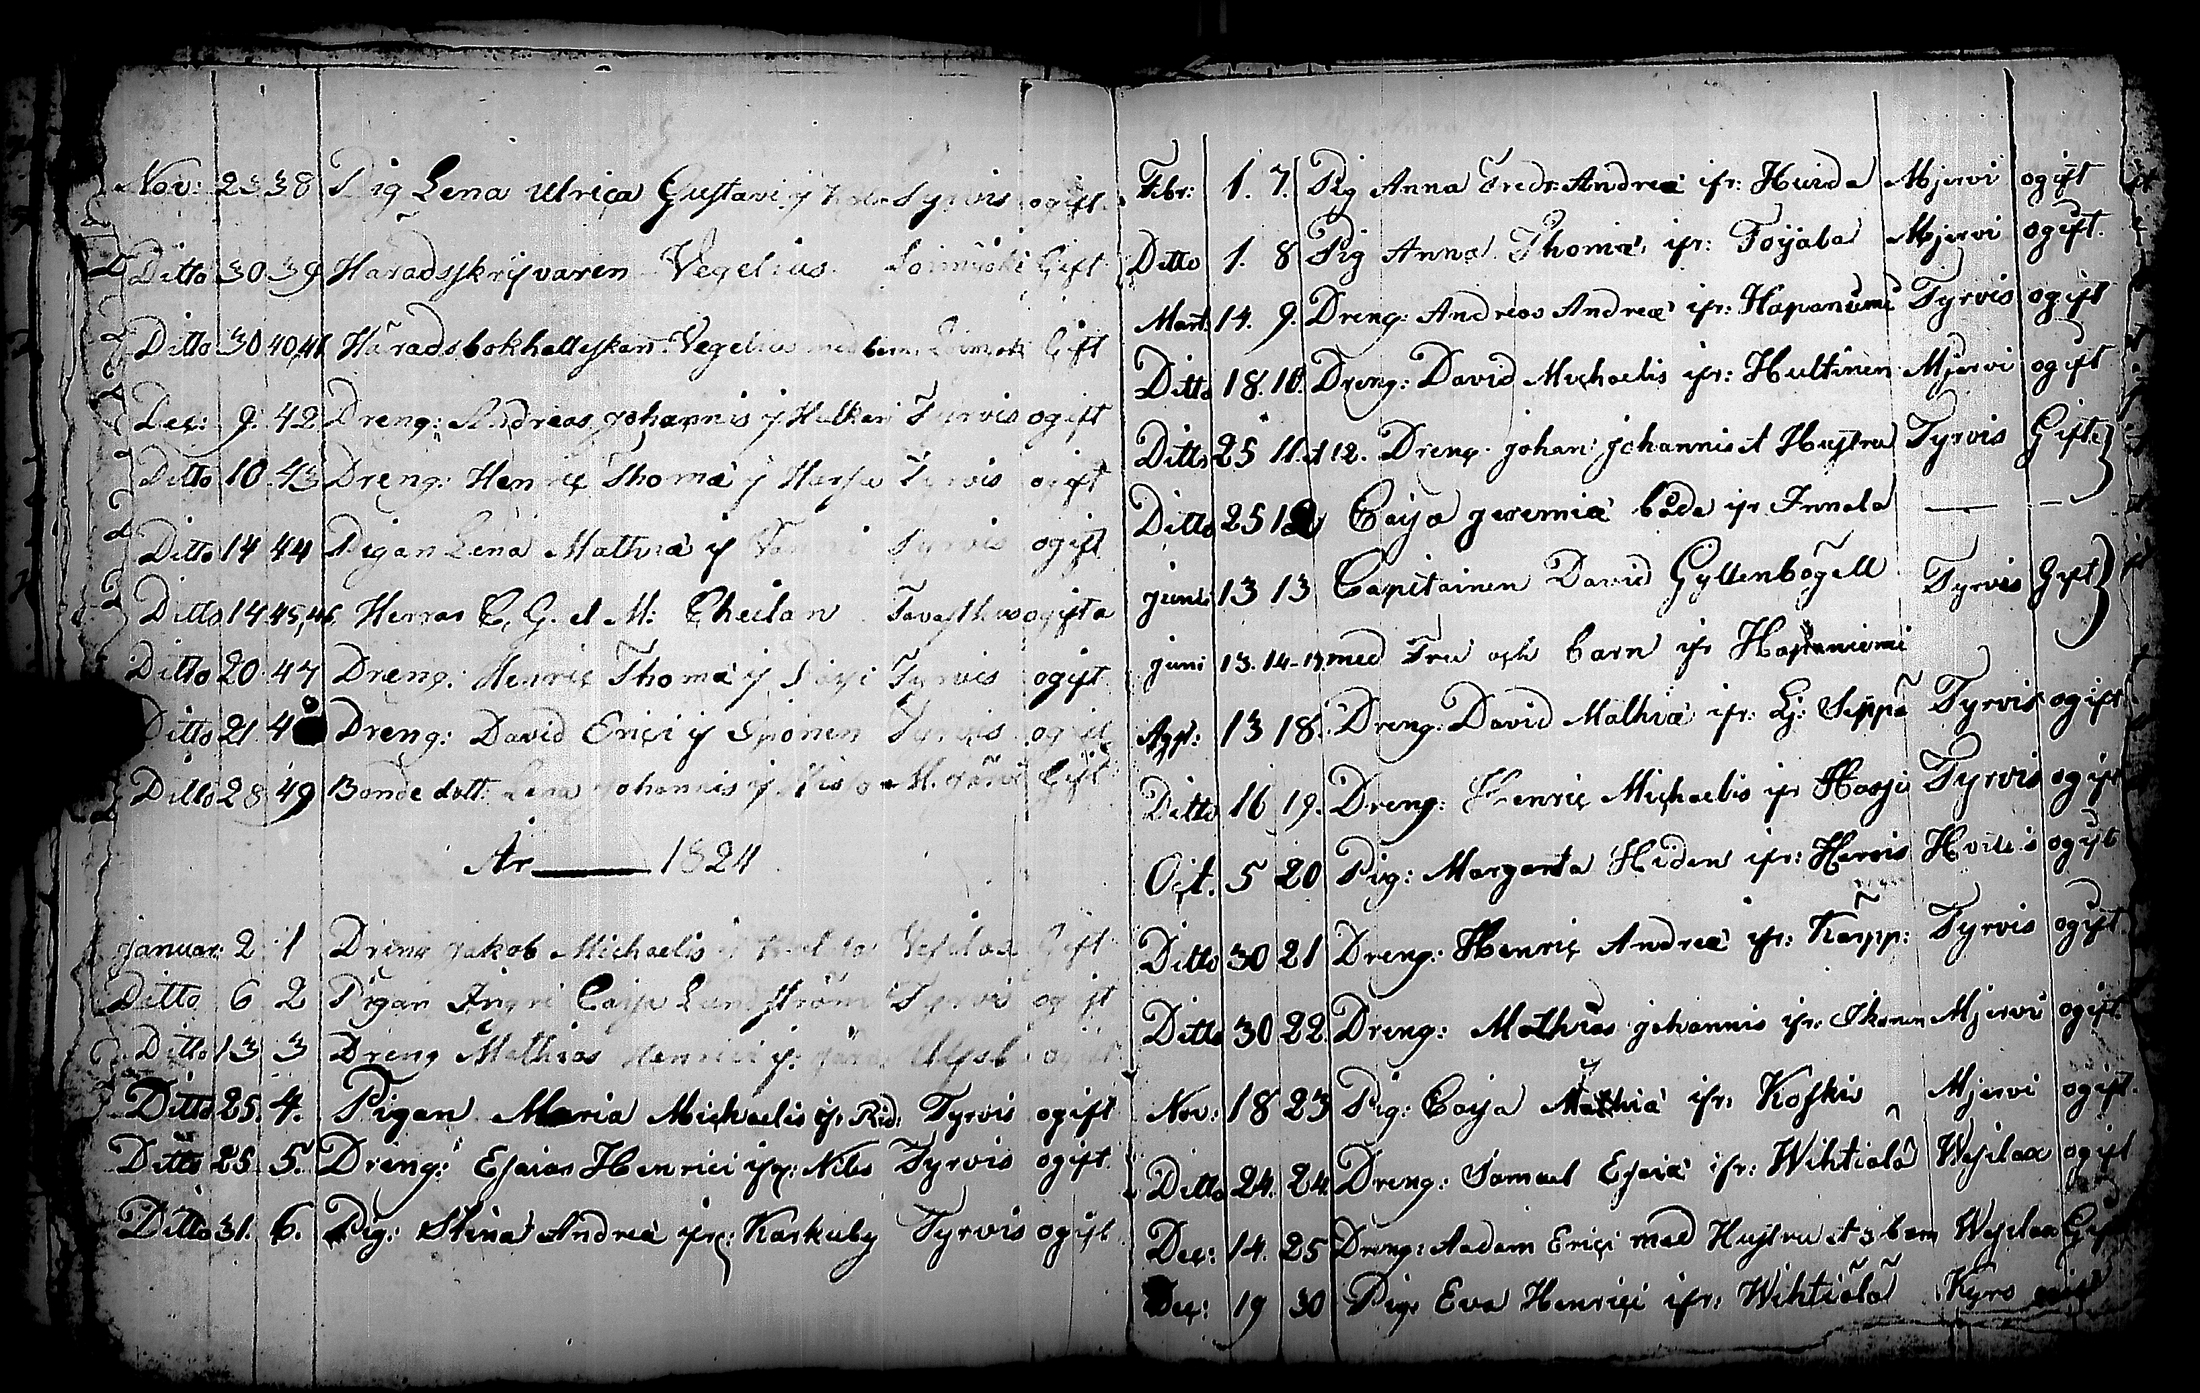 Nov: 23 38 Pig Lena Ulrica Gustavi Tyrvis ogift
Ditto 30 39 Häradsskrifvaren Vegelius Loimijoki Gift
Ditto 30 40,41 Häradsbokhalleskan Vegelius med barn Loimjoki Gift
Dec: 9 42 Dreng: Andreas Johannis if Halkari Tyrvis ogift
Ditto 10 43 Dreng: Henric Thomæ if Tyrvis ogift
Ditto 14 44 Pigan Lena Mathiæ if Tyrvis ogift
Ditto 14 45,46 Herrar C. G. et M: Cheilan Tavasthus ogifta
Ditto 20 47 Dreng: Henric Thomæ if Tyrvis ogift
Ditto 21 48 Dreng: David Erici if Tyrvis ogift
Ditto 28 49 Bonde dott: Lena Johannis if M. järvi Gift
År 1824
Januar: 2 1 Dreng Jakob Michaelis Vesilax Gift
Ditto 6 2 Pigan Ingri Caisa Lundström Tyrvis ogift
Ditto 13 3 Dreng Mathias Henrici if: ogift
Ditto 25. 4. Pigan Maria Michaelis ifr Rid: Tyrvis ogift
Ditto 25. 5. Dreng: Esaias Henrici ifr: Nibs Tyrvis ogift.
Ditto 31. 6. Pig: Stina Andreæ ifr: Karkuby Tyrvis ogift
Febr: 1. 7. Pig Anna Fredr: Andreæ ifr: Huida Mjervi ogift
Ditto 1. 8 Pig Anna Thomæ ifr: Toijala Mjervi ogift.
Mart: 14. 9. Dreng: Andreas Andreæ ifr: Hapanumi Tyrvis ogift
Ditto 18. 10. Dreng: David Michaelis ifr: Hultinen Mjervi ogift
Ditto 25 11. et 12. Dreng. Johan: Johannis et Hustru Tyrvis Gifte
Ditto 25 12 Caisa Jeremiæ båda ifr Innala — —
Juni 13 13 Capitainen David Gyllenbögell Tyrvis Gift
Juni 13. 14-17 med Fru och barn ifr Hapaniemi
Agst: 13 18. Dreng: David Mathiæ ifr: Lj: Seppä Tyrvis ogift
Ditto 16 19. Dreng: Henric Michaelis ifr Hosji Tyrvis ogift
Oct. 5 20 Pig: Margareta Hiden ifr: Hervis ogift
Ditto 30 21 Dreng: Henric Andreæ ifr: Kärpp: Tyrvis ogift
Ditto 30 22. Dreng: Mathias Johannis ifr: Ikonen Mjervi ogift.
Nov: 18 23 Pig: Caisa Mathiæ ifr: Koskis Mjervi ogift.
Ditto 24. 24. Dreng: Samuel Esaiæ ifr: Wihtiälä Wesilax ogift
Dec: 14. 25 Dreng: Aadam Erici med Hustru et 3 barn Wesilax Gift
Dec: 19 30 Pig: Eva Henrici ifr: Wihtiälä Kyro